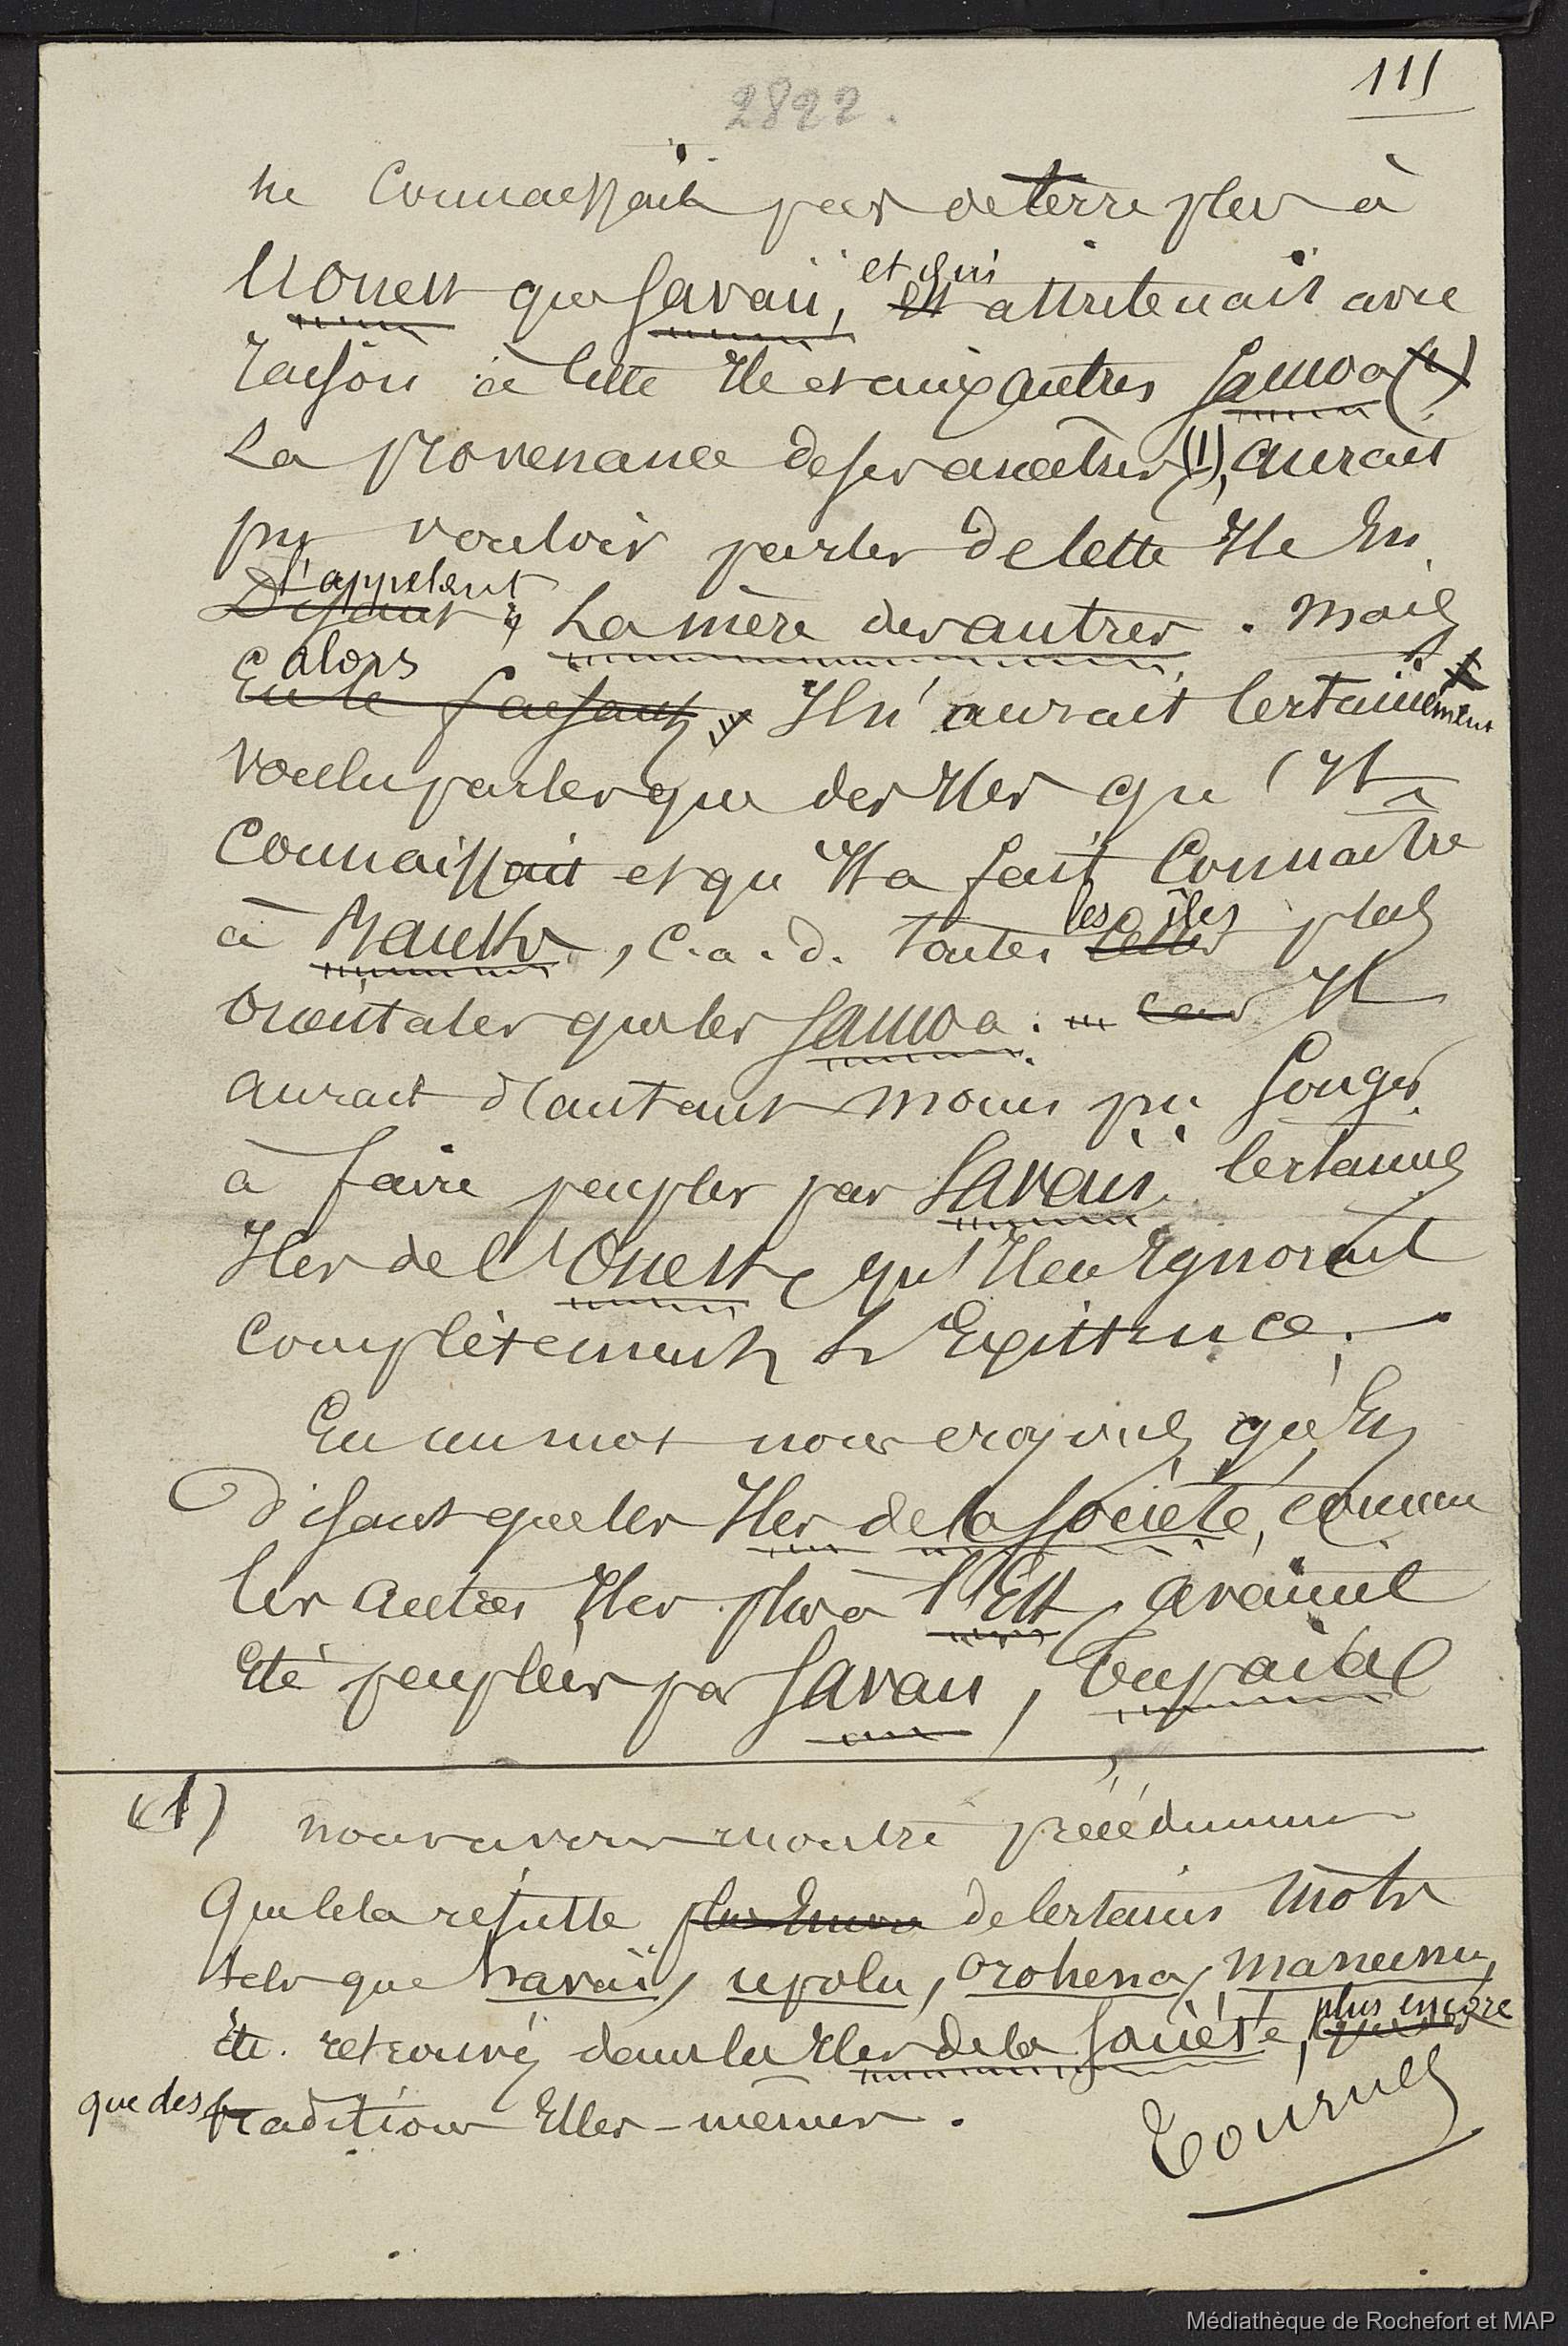 111
2822.
ne connaissait pas de terre plus à
l'Ouest que Savaii, et qui est attribuait avec
raison à cette Ile et aux autres Samoa (1)
La provenance de ses ancêtres (1), aurait
pu vouloir parler de cette Ile en
l'appelant
Disant : La mère des autres. Mais
alors
En le faisant, Il n'aurait certainement
voulu parler que des Iles qu'Il
Connaissait et qu'Il a fait Connaitre
à Banks, c.a.d. toutes les îles celles plus
Orientales que les Samoa. car Il
aurait d'autant moins pu songer
à faire peupler par Savaii certaines
Iles de l'Ouest, qu'Il en Ignorait
complètement l'Existence.
En un mot nous croyons qu'En
Disant que les Iles de la Société, comme
les autres Iles plus à l'Est, avaient
Eté peuplées par Savaii, Tupaia
(1) nous avons montré précédemment
Que cela résulte plus Encore de Certains Mots
tels que havaii, upolu, Orohena, Manunu,
Etc. retrouvés dans les Iles de la Société, plus encore
que des traditions Elles-mêmes.
Tournez
Médiathèque de Rochefort et MAP